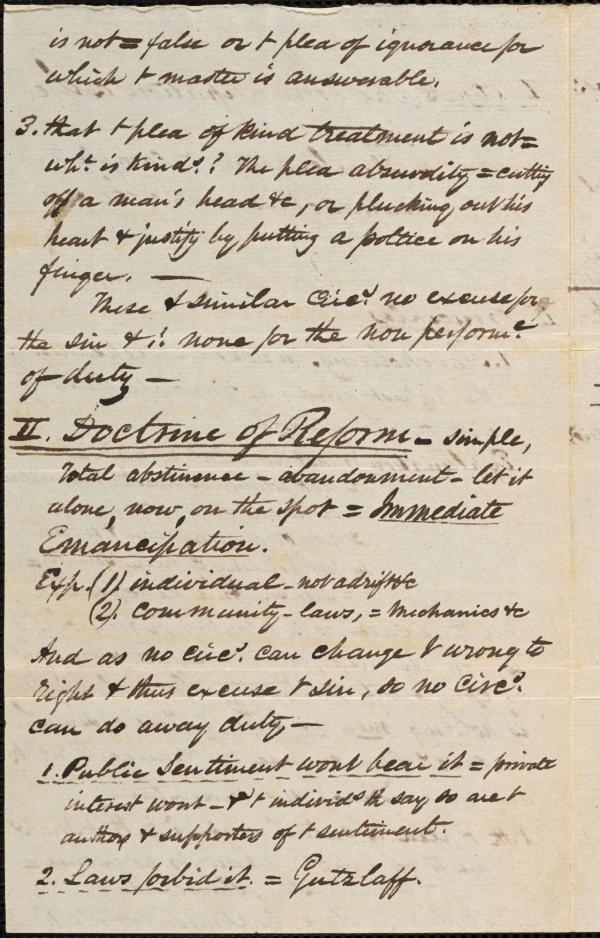 is not = false or t plea of ignorance for
which t master is answerable.
3. that t plea of kind treatment is not =
wht. is kinds.? The plea absurdity = cutting
off a man's head &c, or plucking out his
heart & justify by putting a poltice on his
finger. —
These & similar circs. no excuse for
the sin & i: none for the non performce.
of duty —
II. Doctrine of Reform — simple,
total abstinence — abandonment — let it
alone, now, on the spot = Immediate
Emancipation.
Exp. (1) individual — not adrift &c
(2). community — laws, = mechanics &c
And as no circs. can change t wrong to
right & thus excuse t sin, so no circs.
can do away duty —
1. Public Sentiment wont bear it = private
interest wont — & t individs th say so are t
authors & supporters of t sentiment.
2. Laws forbid it. = Gutzlaff.